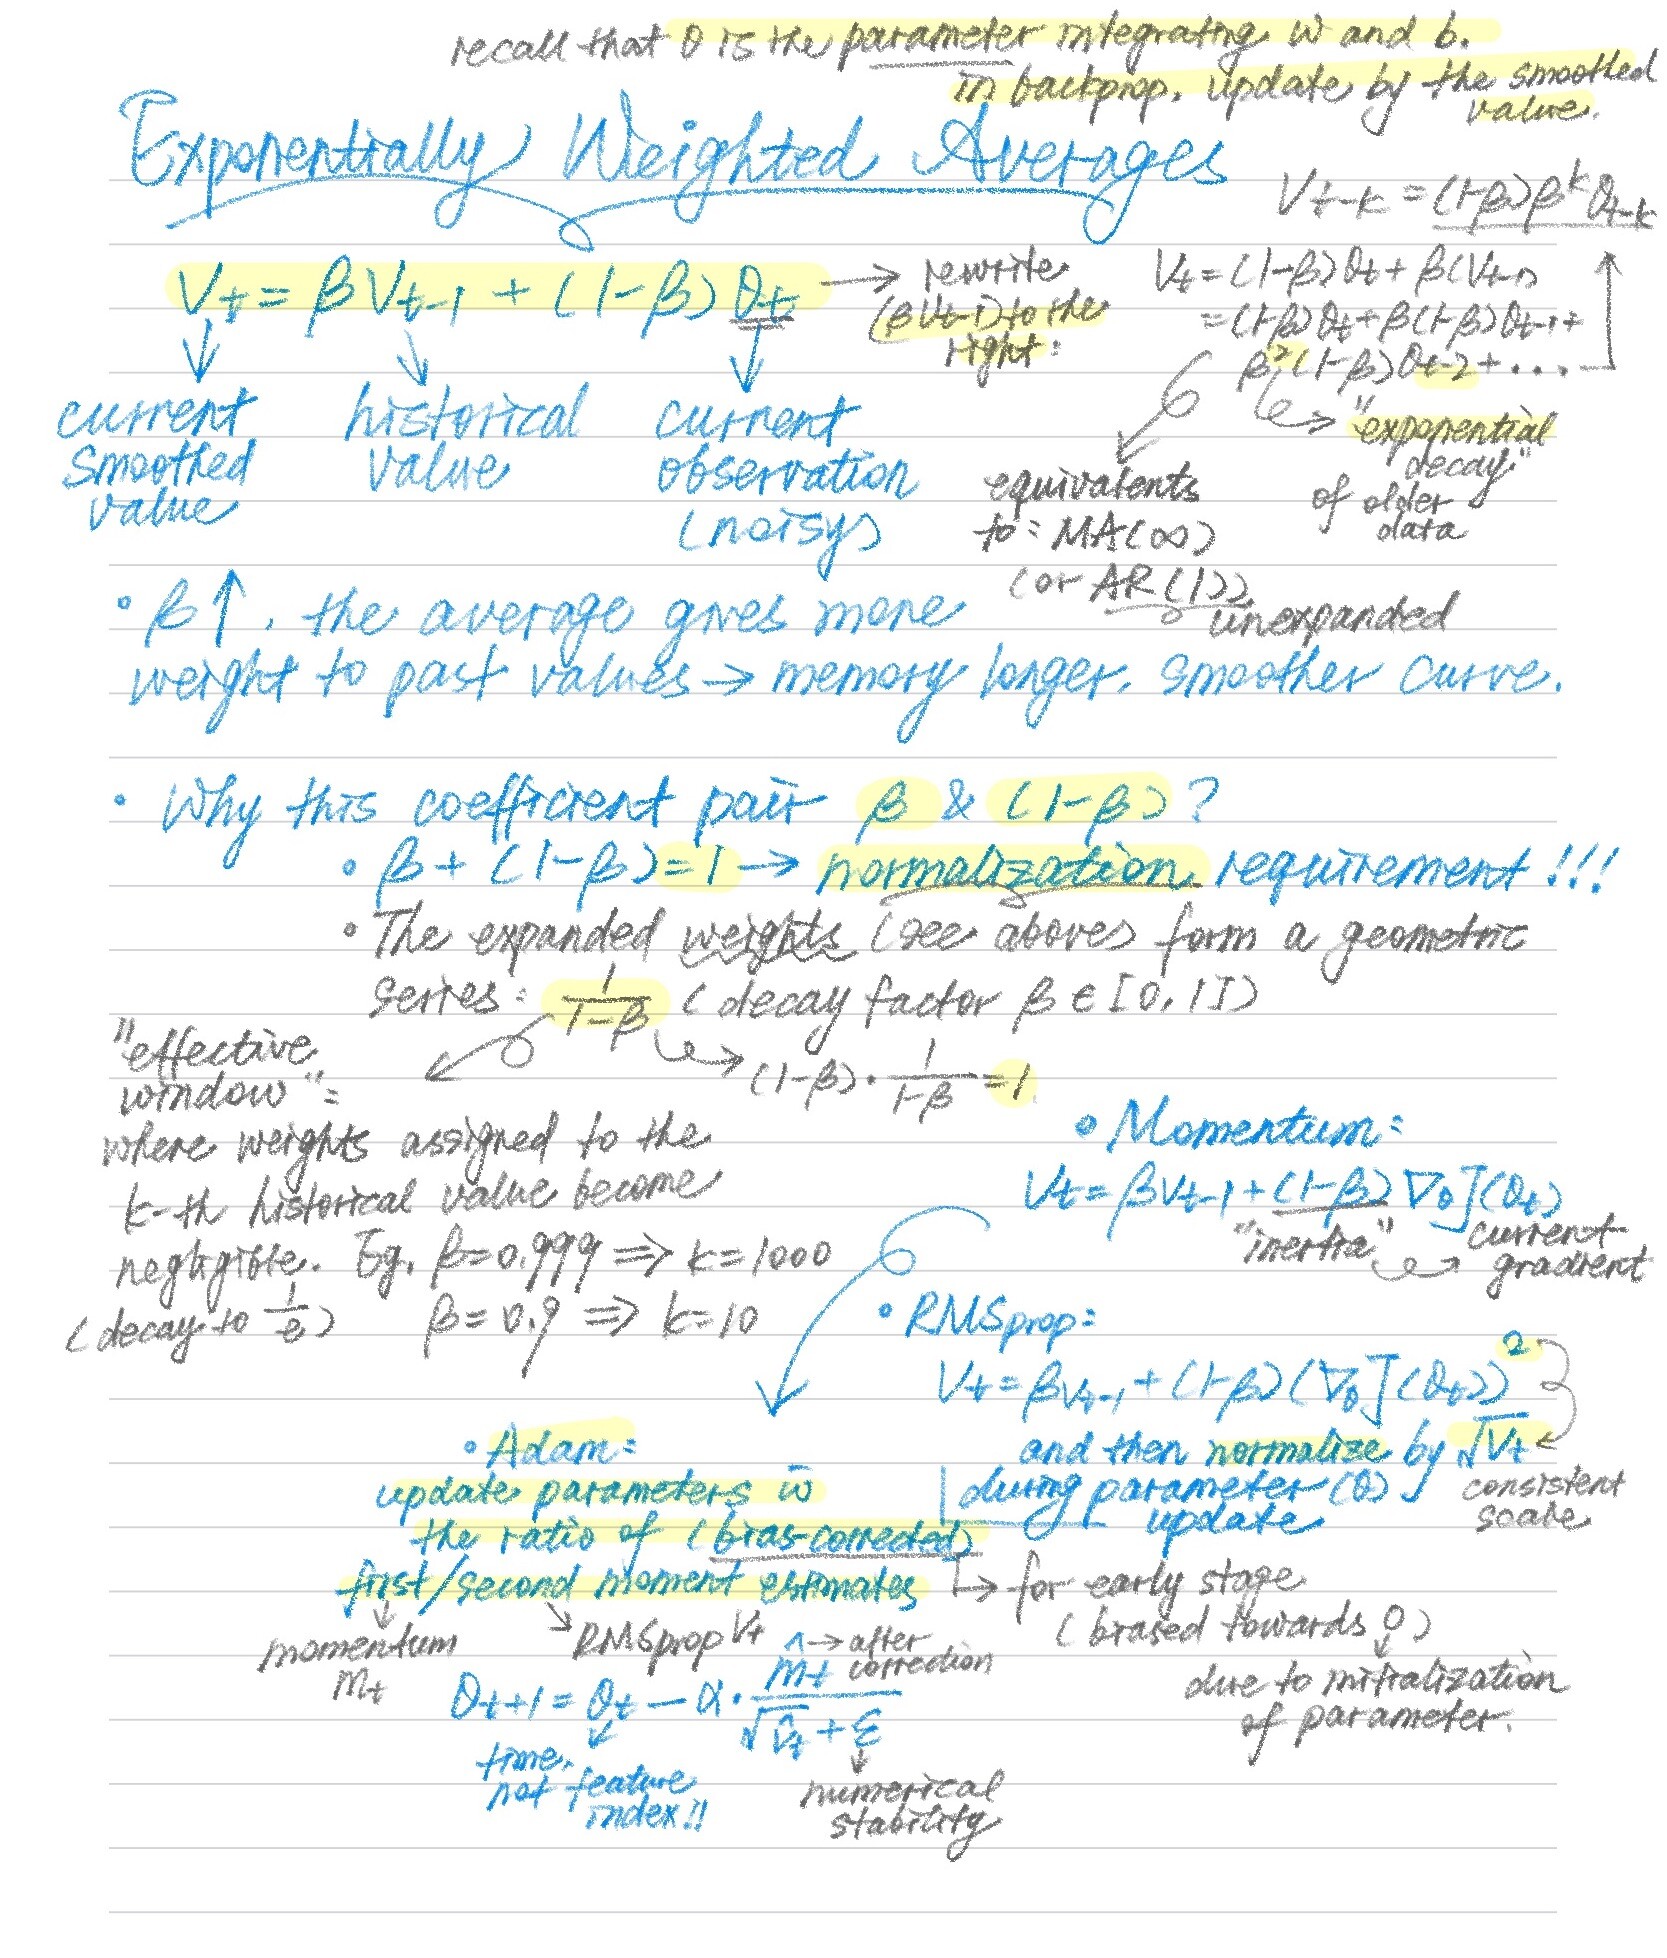 recall that θ is the parameter integrating w and b.
in backprop, update by the smoothed
value.
Exponentially Weighted Averages
V_{t-k} = (1-β)β^k θ_{t-k}
V_t = βV_{t-1} + (1-β)θ_t → rewrite
(βV_{t-1}) to the
right:
V_t = (1-β)θ_t + β(V_{t-1})
= (1-β)θ_t + β(1-β)θ_{t-1} +
β²(1-β)θ_{t-2} + ....
current
smoothed
value
historical
value
current
observation
(noisy)
equivalents
to: MA(∞)
(or AR(1))
unexpanded
"exponential
decay"
of older
data
• β↑, the average gives more
weight to past values → memory longer, smoother curve.
• Why this coefficient pair β & (1-β)?
• β + (1-β) = 1 → normalization requirement!!!
• The expanded weights (see above) form a geometric
series: 1/(1-β) (decay factor β ∈ [0,1])
(1-β)·1/(1-β) = 1.
"effective
window":
where weights assigned to the
k-th historical value become
negligible. Eg. β=0.999 ⇒ k=1000
(decay to 1/e) β=0.9 ⇒ k=10
• Momentum:
V_t = βV_{t-1} + (1-β)∇_θ J(θ_t)
"inertia"
current
gradient
• RMSprop:
V_t = βV_{t-1} + (1-β)(∇_θ J(θ_t))²
and then normalize by √V_t
during parameter (θ)
update
consistent
scale
• Adam:
update parameters w
the ratio of (bias-corrected)
first/second moment estimates
→ for early stage
(biased towards 0)
due to initialization
of parameter.
momentum
m_t
RMSprop V_t
→ after
correction
θ_{t+1} = θ_t - α · m̂_t/(√v̂_t + ε)
time,
not feature
index!!
numerical
stability